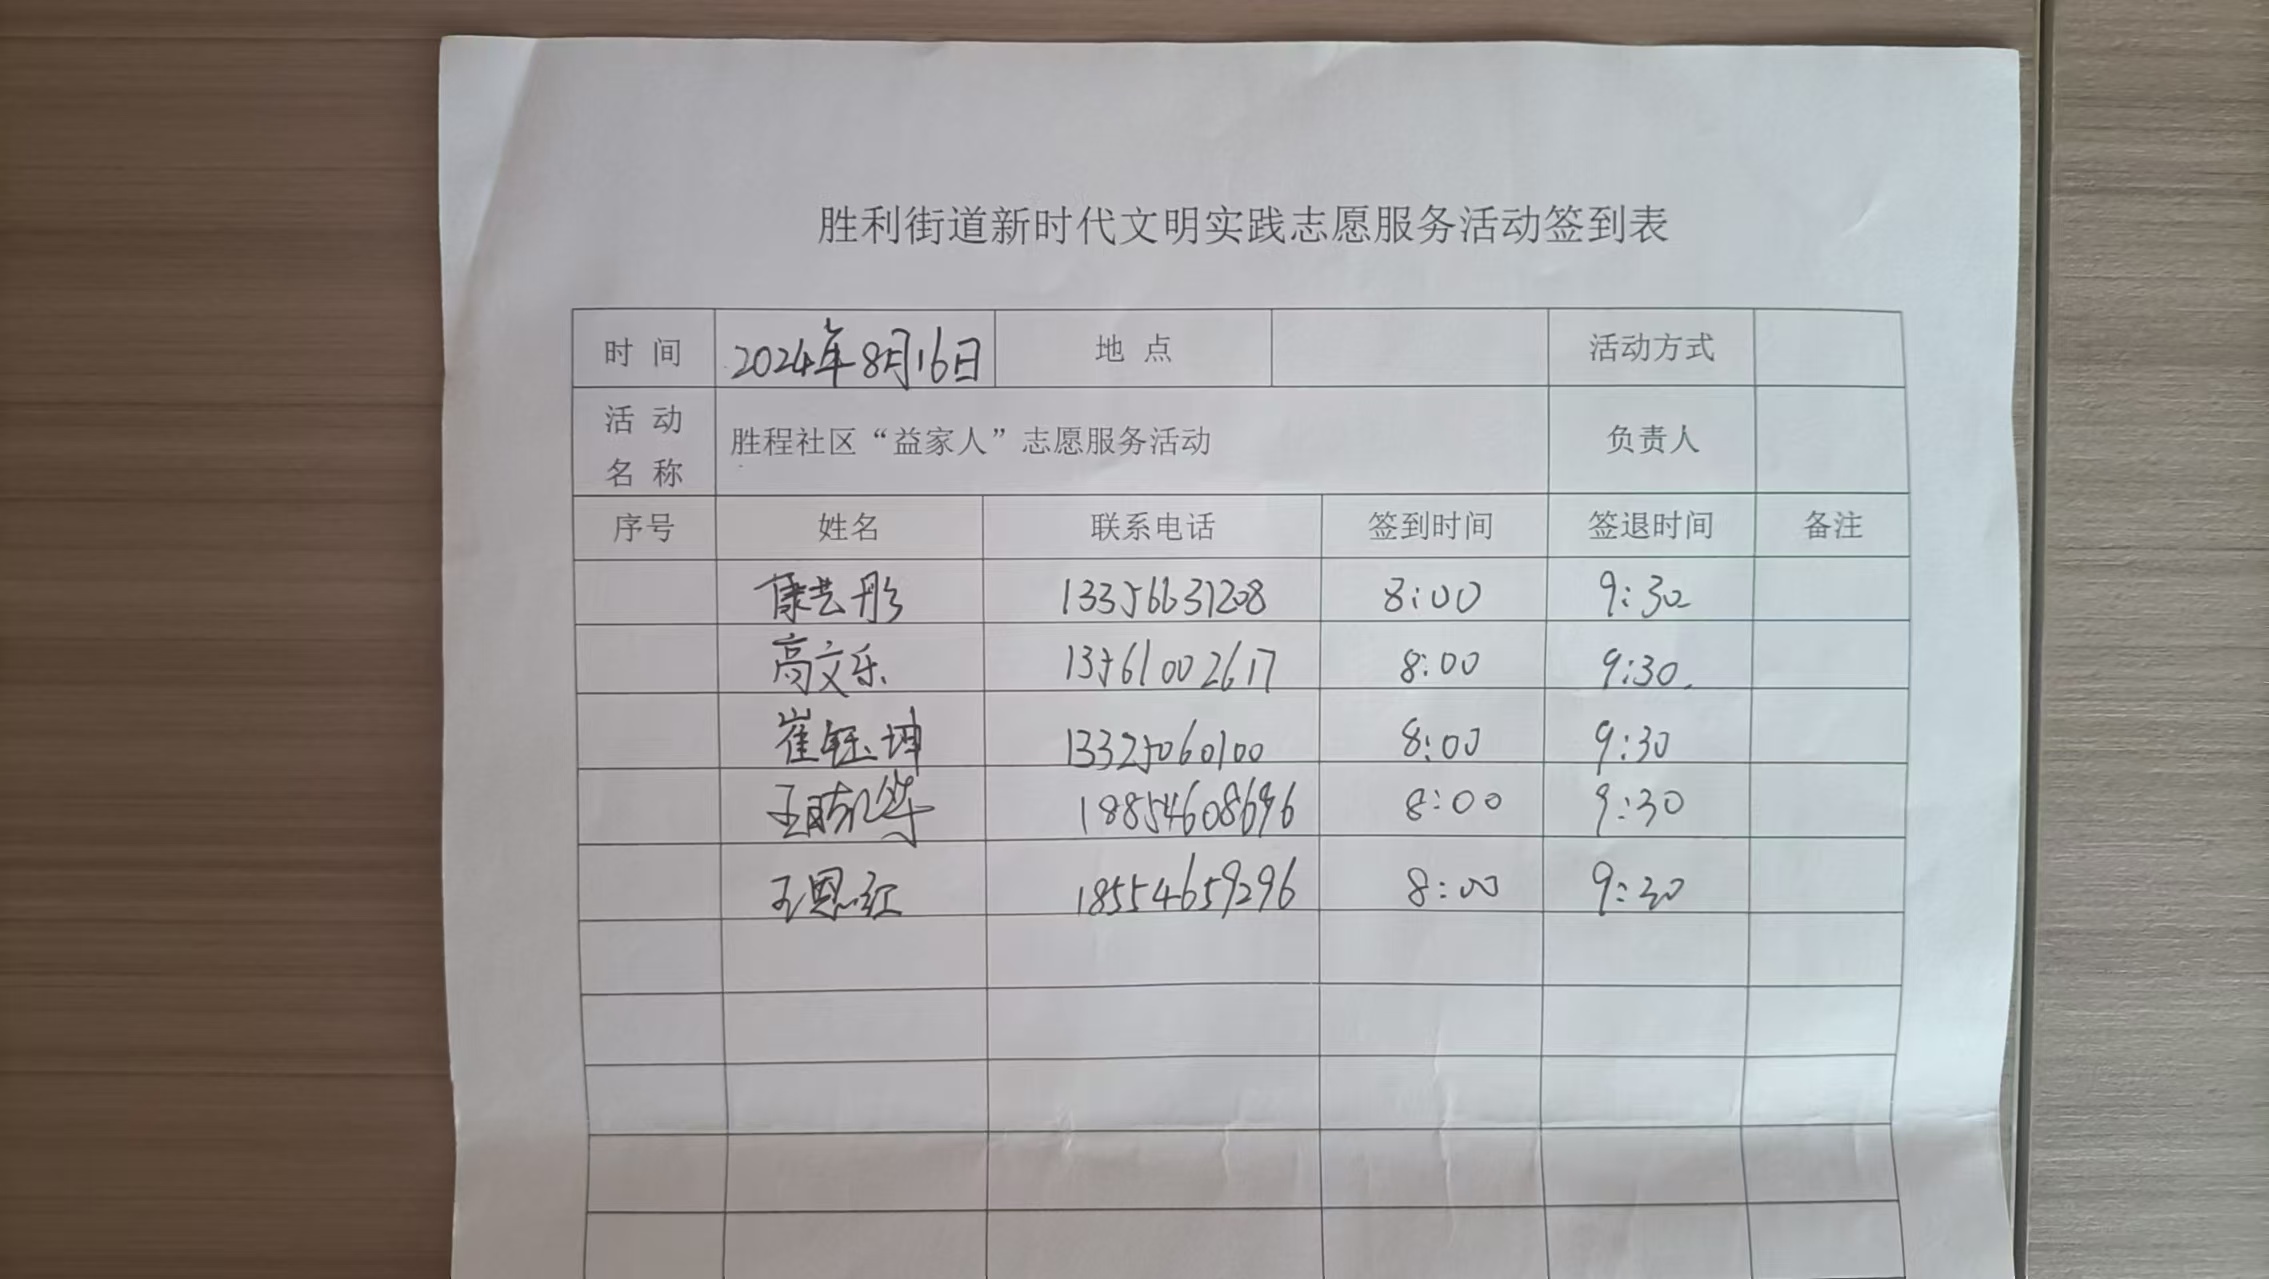 胜利街道新时代文明实践志愿服务活动签到表
时 间 2024年8月16日 地 点 活动方式
活 动 名 称 胜程社区“益家人”志愿服务活动 负责人
序号 姓名 联系电话 签到时间 签退时间 备注
康艺彤 13356631208 8:00 9:30
高文乐 13561002617 8:00 9:30
崔钰坤 13325060100 8:00 9:30
18854608696 8:00 9:30
王恩红 18554659296 8:00 9:30